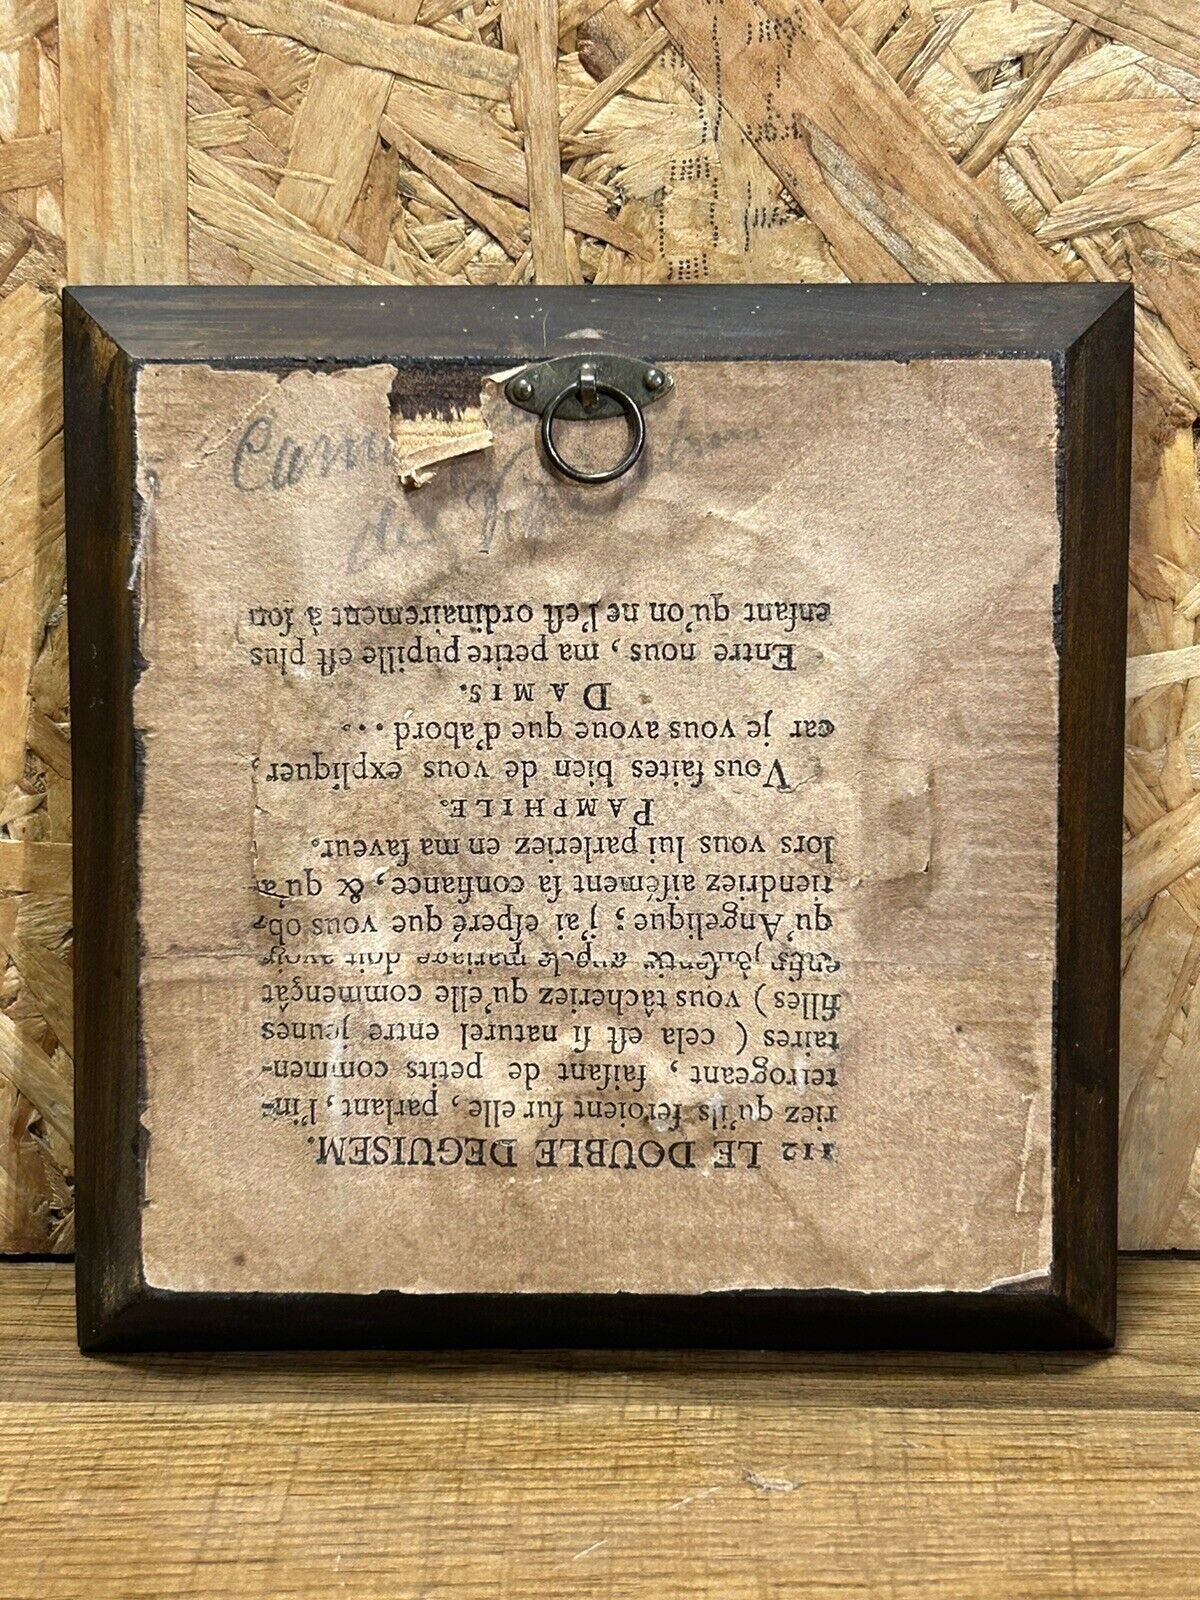 112 LE DOUBLE DEGUISEM.
riez qu'ils feroient ſur elle, parlant, l'in-
terrogeant, faiſant de petits commen-
taires ( cela eſt ſi naturel entre jeunes
filles ) vous tâcheriez qu'elle commençât
mariage doit avoir
qu'Angelique ; j'ai eſperé que vous ob-
tiendriez aiſément ſa confiance, & qu'a-
lors vous lui parleriez en ma faveur.
PAMPHILE.
Vous faites bien de vous expliquer,
car je vous avoue que d'abord . . .
DAMIS.
Entre nous, ma petite pupille eſt plus
enfant qu'on ne l'eſt ordinairement à ſon